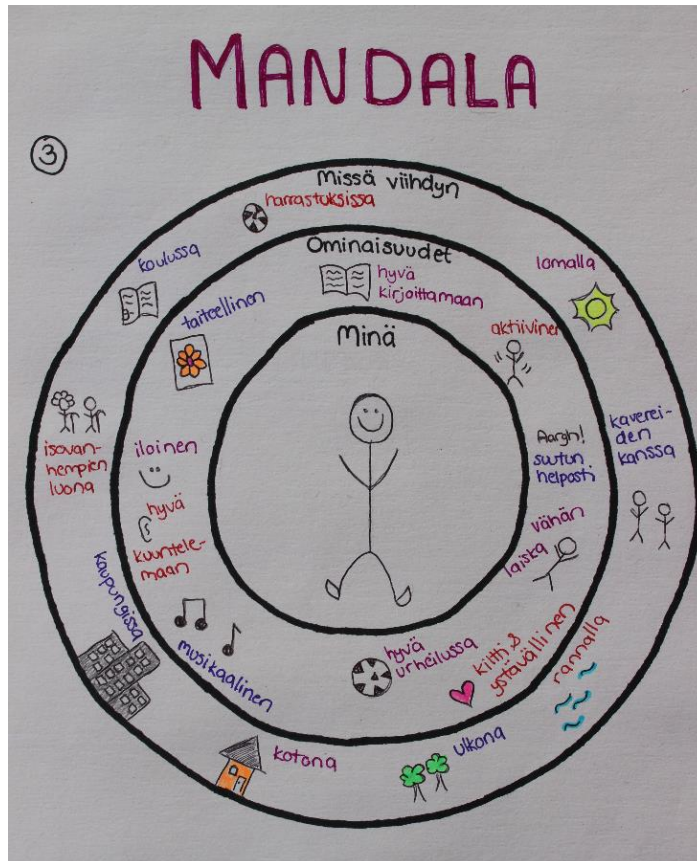 MANDALA
3
Missä viihdyn
harrastuksissa
koulussa
lomalla
kaverei-
den
kanssa
rannalla
ulkona
kotona
kaupungissa
isovan-
hempien
luona
Ominaisuudet
hyvä
kirjoittamaan
aktiivinen
Aargh!
suutun
helposti
vähän
laiska
kiltti &
ystävällinen
hyvä
urheilussa
musikaalinen
hyvä
kuuntele-
maan
iloinen
taiteellinen
Minä